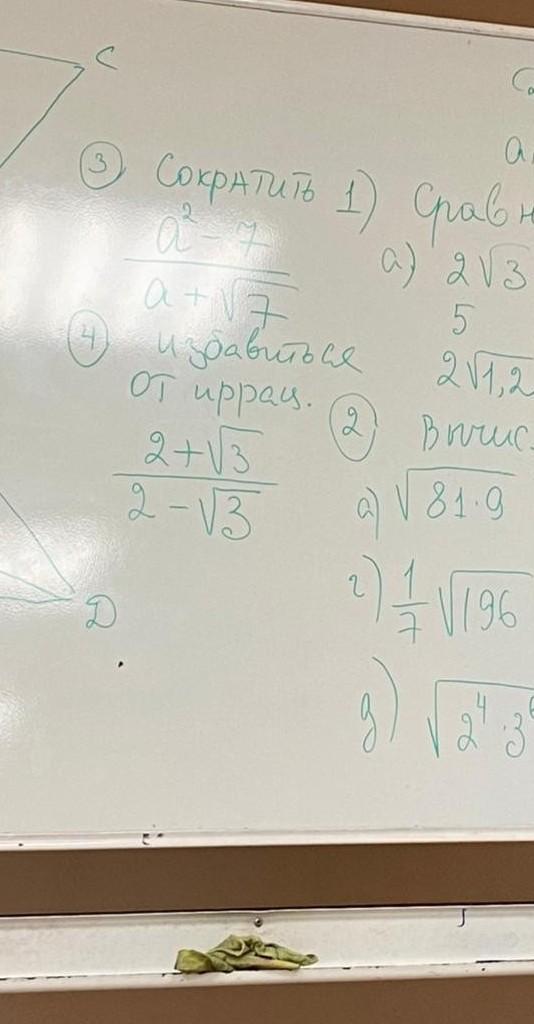 C
③ Сократить
a² - 7
a + √7
④ избавиться
от иррац.
2+√3
2-√3
D
1) Срав
а) 2√3
5
2√1,2
② Вычис
а) √81·9
г) 1/7 √196
д) √2⁴·3⁶